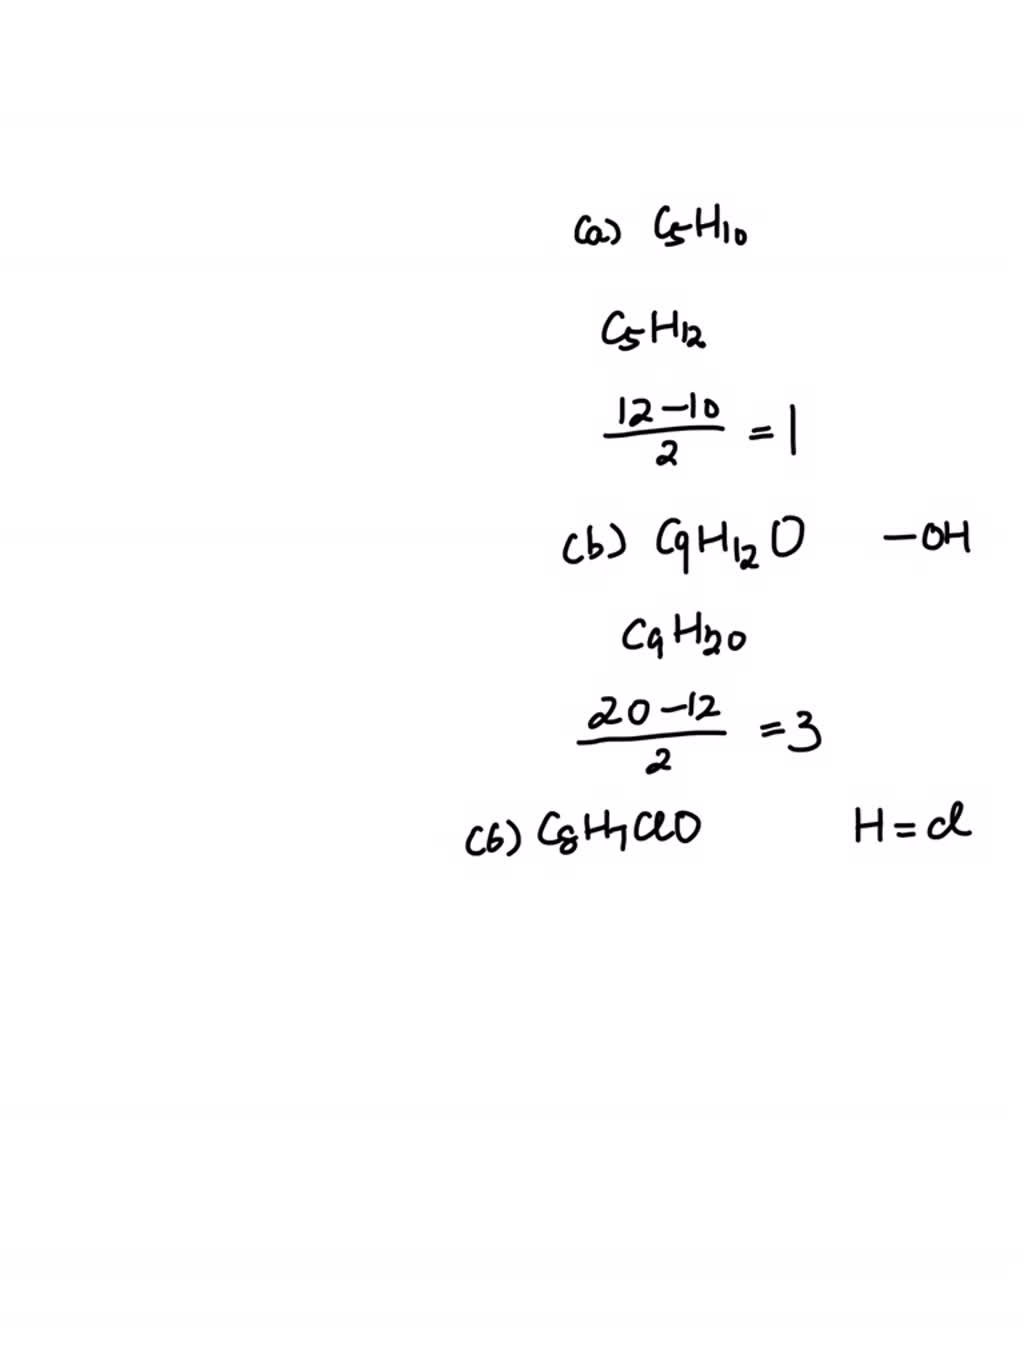 (a) C5H10
C5H12
12-10/2 = 1
(b) C9H12O -OH
C9H20
20-12/2 = 3
(b) C8H7ClO H=Cl